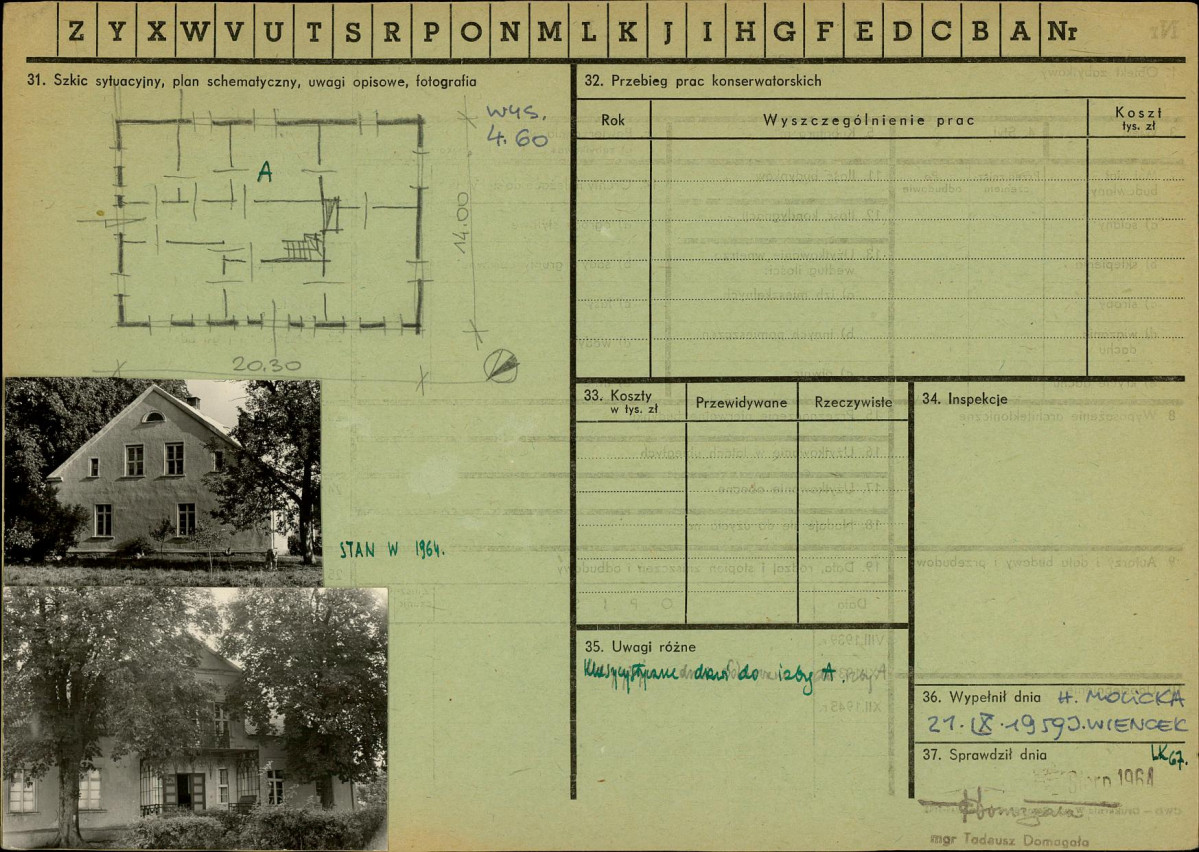 Z Y X W V U T S R P O N M L K J I H G F E D C B A Nr
31. Szkic sytuacyjny, plan schematyczny, uwagi opisowe, fotografia
wys.
4.60
A
14.00
20.30
STAN W 1964.
32. Przebieg prac konserwatorskich
Rok
Wyszczególnienie prac
Koszt
tys. zł
33. Koszty
w tys. zł
Przewidywane
Rzeczywiste
34. Inspekcje
35. Uwagi różne
Klasycystyczne drzwi do izby A.
36. Wypełnił dnia H. MOLICKA
21. IX. 1959 J. WIENCEK
37. Sprawdził dnia
LK 67.
1964
mgr Tadeusz Domagała